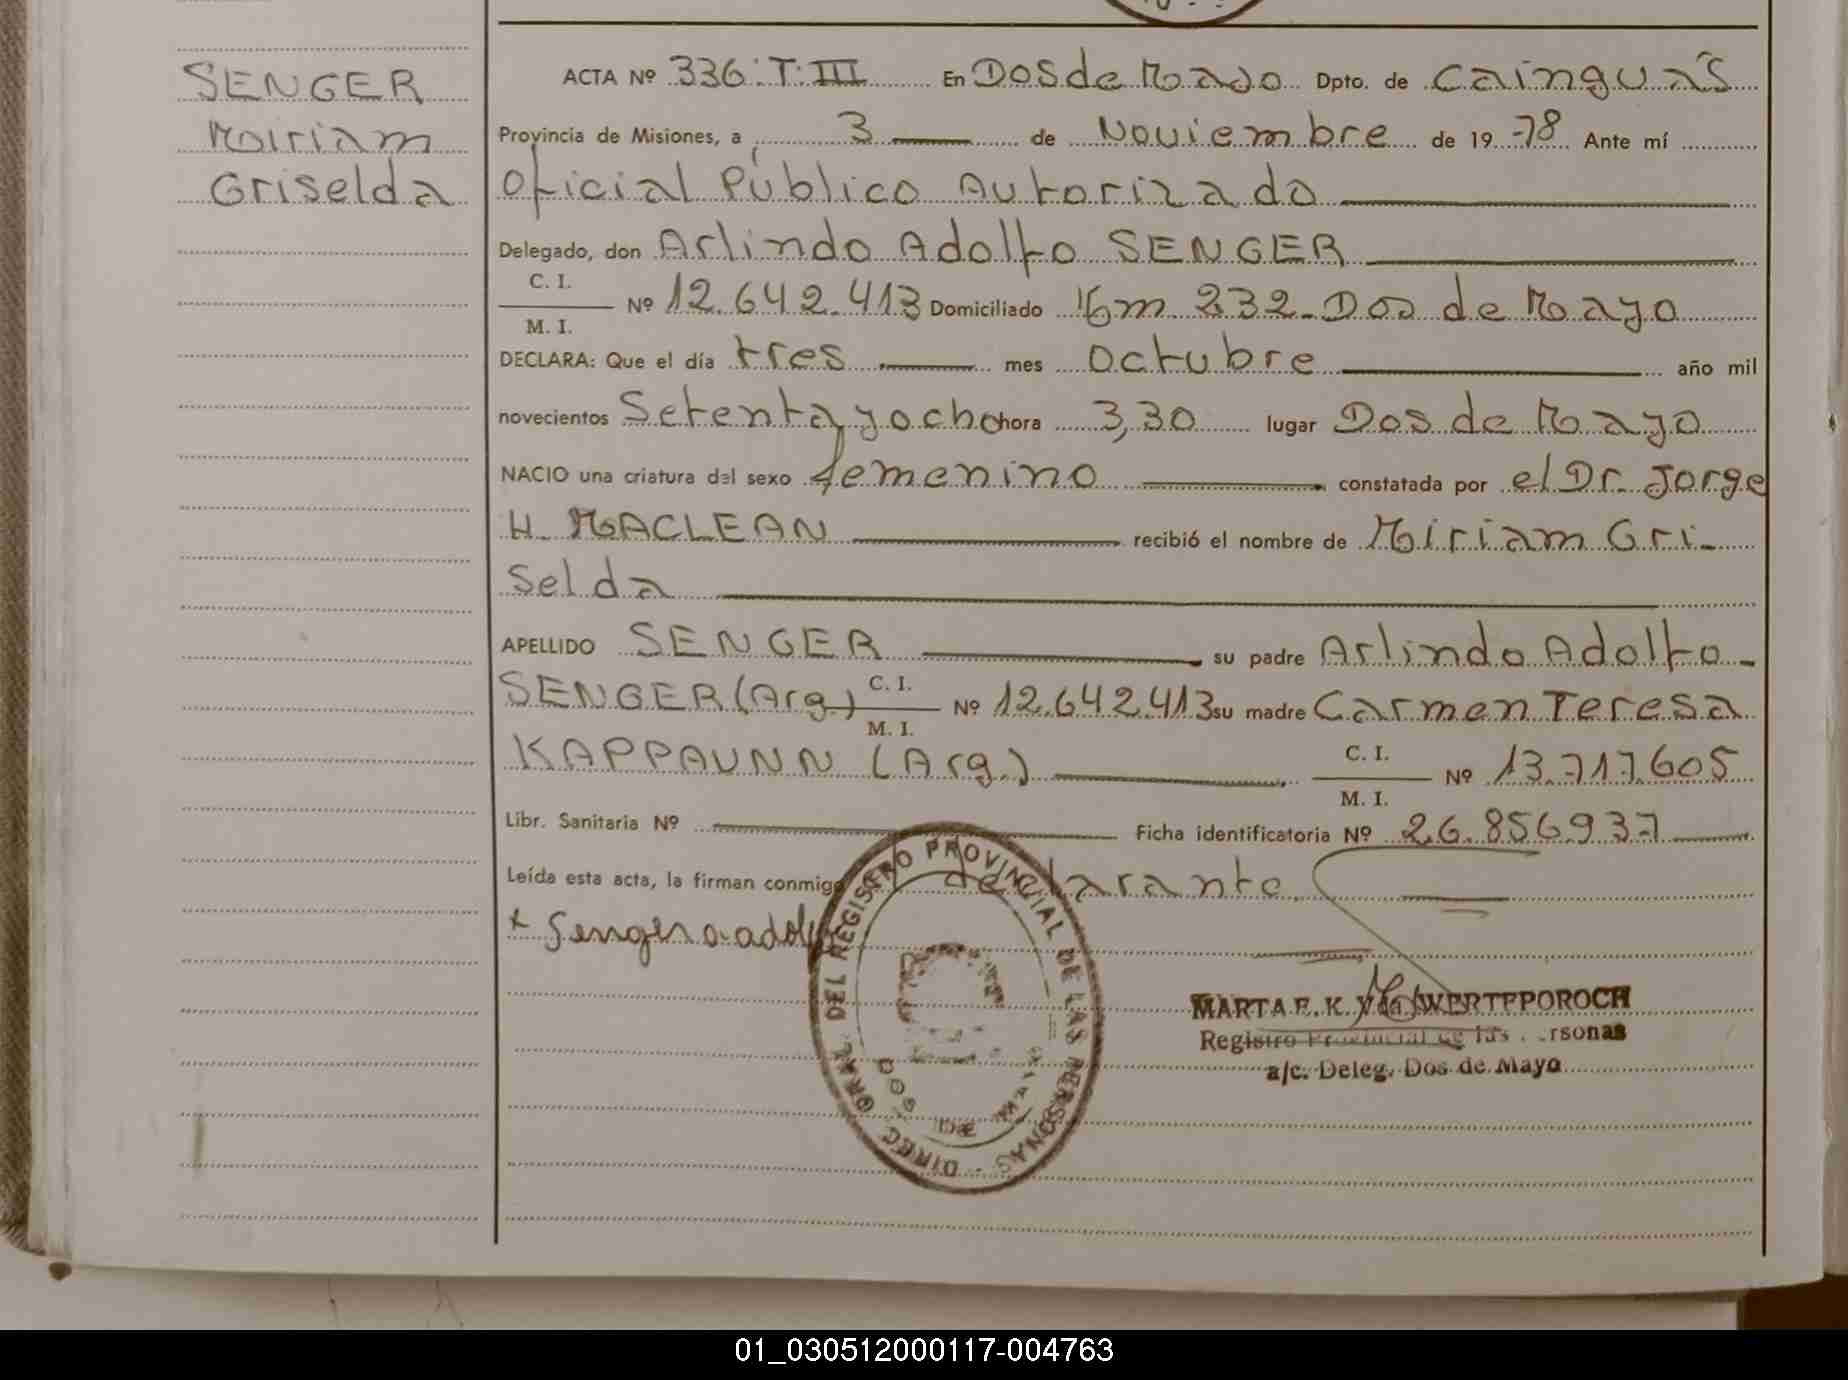 SENGER
Miriam
Griselda
ACTA Nº 336:T:III En Dos de Mayo Dpto. de Cainguás
Provincia de Misiones, a 3 de Noviembre de 19 78 Ante mí
Oficial Público Autorizado
Delegado, don Arlindo Adolfo SENGER
C. I.
M. I.
Nº 12.642.413 Domiciliado Km 232-Dos de Mayo
DECLARA: Que el día tres mes Octubre año mil
novecientos Setenta y ocho hora 3,30 lugar Dos de Mayo
NACIO una criatura del sexo femenino constatada por el Dr. Jorge
H. MACLEAN recibió el nombre de Miriam Gri-
selda
APELLIDO SENGER su padre Arlindo Adolfo
SENGER (Arg.) C. I. M. I. Nº 12.642.413 su madre Carmen Teresa
KAPPAUNN (Arg.) C. I. M. I. Nº 13.717.605
Libr. Sanitaria Nº Ficha identificatoria Nº 26.856937
Leída esta acta, la firman conmigo el declarante.
x Senger a adolfo
DIREC GRAL DEL REGISTRO PROVINCIAL DE LAS PERSONAS
DOS DE MAYO
MARTA E. K. Vda WERTEPOROCH
Registro Provincial de las Personas
a/c. Deleg. Dos de Mayo
01_030512000117-004763